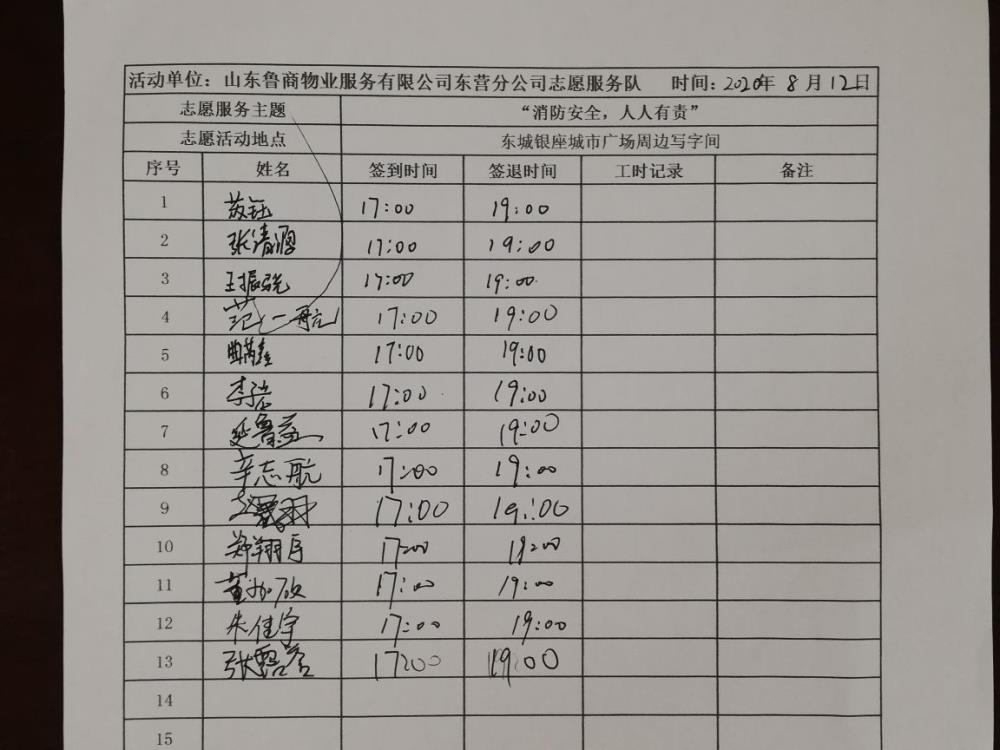 活动单位：山东鲁商物业服务有限公司东营分公司志愿服务队 时间：2020年 8月12日
志愿服务主题 “消防安全，人人有责”
志愿活动地点 东城银座城市广场周边写字间
序号 姓名 签到时间 签退时间 工时记录 备注
1 17:00 19:00
2 17:00 19:00
3 17:00 19:00
4 范一航 17:00 19:00
5 17:00 19:00
6 17:00 19:00
7 17:00 19:00
8 辛志航 17:00 19:00
9 17:00 19:00
10 17:00 19:00
11 17:00 19:00
12 朱佳宇 17:00 19:00
13 17:00 19:00
14
15